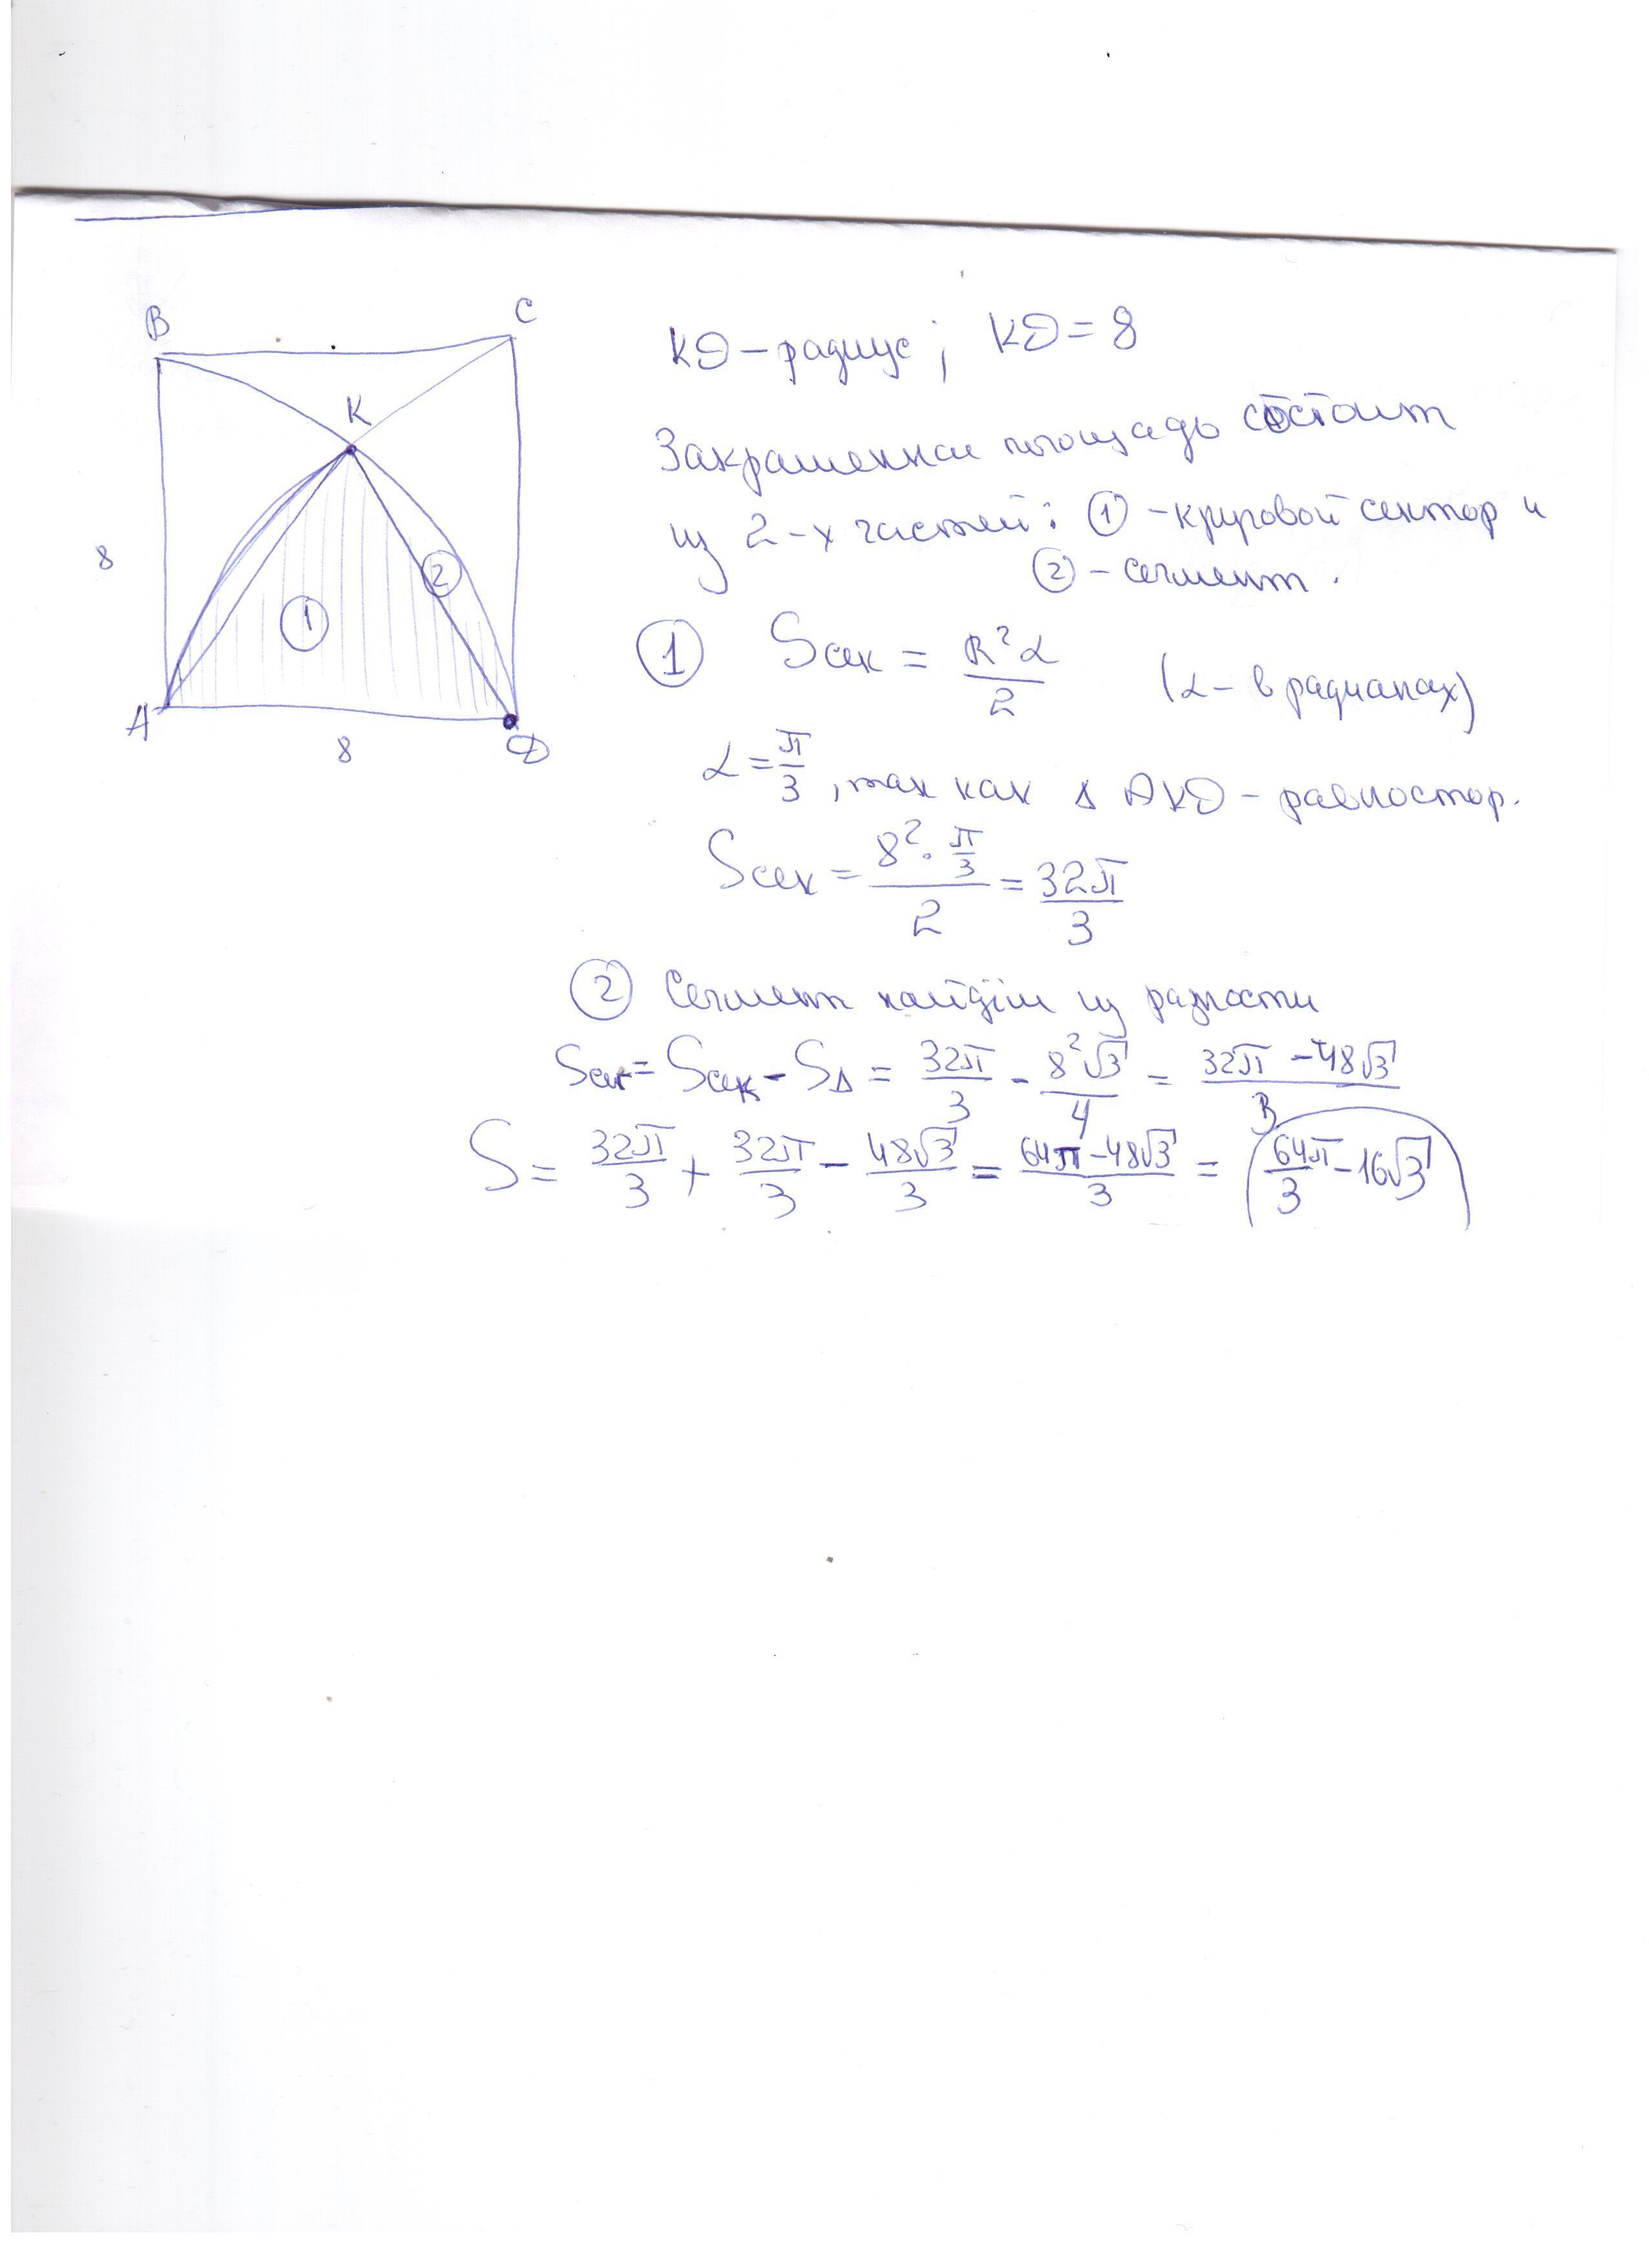 B
C
K
8
1
2
A
8
D
KD – радиус; KD = 8
Закрашенная площадь состоит
из 2-х частей: ① – круговой сектор и
② – сегмент.
① Sсек = R²α/2 (α – в радианах)
α = π/3, так как Δ AKD – равностор.
Sсек = (8² · π/3)/2 = 32π/3
② Сегмент найдём из разности
Sсег = Sсек – SΔ = 32π/3 – 8²√3/4 = (32π – 48√3)/3
S = 32π/3 + 32π/3 – 48√3/3 = (64π – 48√3)/3 = 64π/3 – 16√3